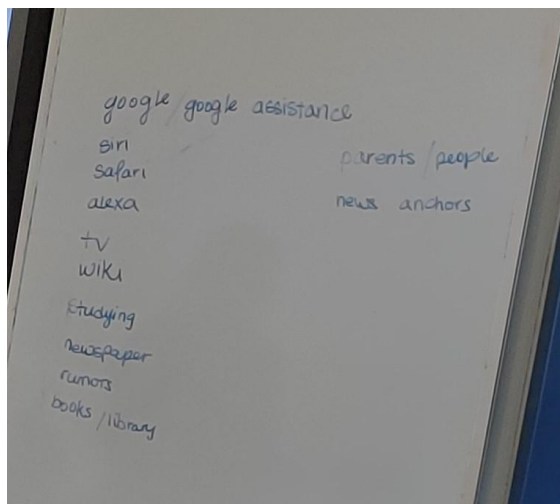 google / google assistance
siri
safari
alexa
tv
wiki
studying
newspaper
rumors
books / library
parents / people
news anchors